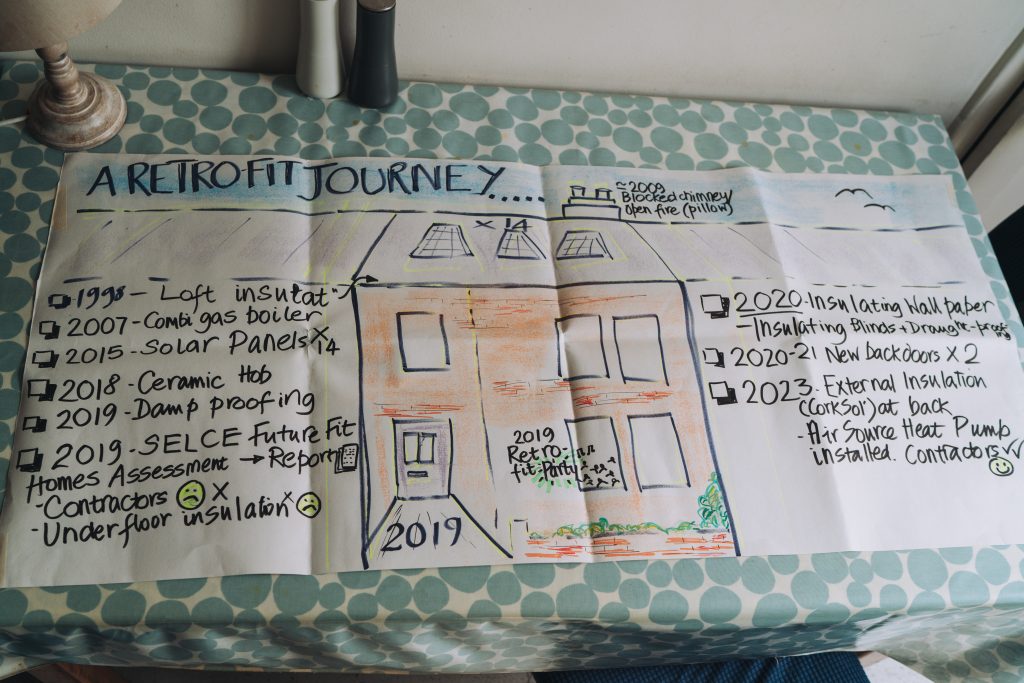 A RETROFIT JOURNEY.....
≈ 2009
Blocked chimney/
open fire (pillow)
× 14
1998 - Loft insulat
2007 - Combi gas boiler
2015 - Solar Panels × 14
2018 - Ceramic Hob
2019 - Damp proofing
2019 - SELCE Future Fit
Homes Assessment → Report
- Contractors ☹ X
- Underfloor insulation X ☹
2019
Retro-
fit Party
2019
2020 - Insulating Wall paper
- Insulating Blinds + Draught-proof
2020-21 New backdoors X 2
2023 - External Insulation
(CorkSol) at back
- Air Source Heat Pump
installed. Contractors ✓✓
☺